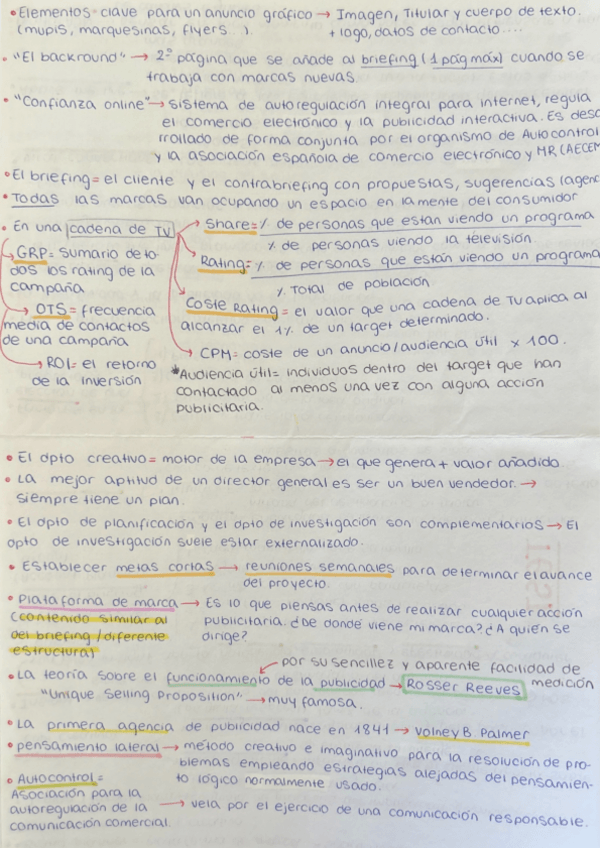 • Elementos clave para un anuncio gráfico → Imagen, Titular y cuerpo de texto.
(mupis, marquesinas, flyers...) + logo, datos de contacto....
• "El backround" → 2ª página que se añade al briefing (1 pág máx) cuando se
trabaja con marcas nuevas.
• "Confianza online" → sistema de autoregulación integral para internet, regula
el comercio electrónico y la publicidad interactiva. Es desa
rrollado de forma conjunta por el organismo de Autocontrol
y la asociación española de comercio electrónico y MR (AECEM
• El briefing = el cliente y el contrabriefing con propuestas, sugerencias (agenc
• Todas las marcas van ocupando un espacio en la mente del consumidor
• En una cadena de TV
→ Share = % de personas que estan viendo un programa
% de personas viendo la televisión.
→ Rating = % de personas que están viendo un programa
% Total de población
→ Coste Rating = el valor que una cadena de TV aplica al
alcanzar el 1% de un target determinado.
→ CPM = coste de un anuncio/audiencia útil x 100.
* Audiencia útil = individuos dentro del target que han
contactado al menos una vez con alguna acción
publicitaria.
→ GRP = sumario de to
dos los rating de la
campaña
→ OTS = frecuencia
media de contactos
de una campaña
→ ROI = el retorno
de la inversión
• El dpto creativo = motor de la empresa → el que genera + valor añadido.
• La mejor aptitud de un director general es ser un buen vendedor. →
siempre tiene un plan.
• El dpto de planificación y el dpto de investigación son complementarios → El
dpto de investigación suele estar externalizado.
• Establecer metas cortas → reuniones semanales para determinar el avance
del proyecto.
• Plataforma de marca → Es lo que piensas antes de realizar cualquier acción
(contenido similar al publicitaria. ¿De donde viene mi marca? ¿A quién se
del briefing/diferente dirige?
estructura)
por su sencillez y aparente facilidad de
medición
• La teoría sobre el funcionamiento de la publicidad → Rosser Reeves
"Unique Selling Proposition" → muy famosa.
• La primera agencia de publicidad nace en 1841 → Volney B Palmer
• pensamiento lateral → método creativo e imaginativo para la resolución de pro
blemas empleando estrategias alejadas del pensamien-
to lógico normalmente usado.
• Autocontrol =
Asociación para la
autoregulación de la → vela por el ejercicio de una comunicación responsable.
comunicación comercial.